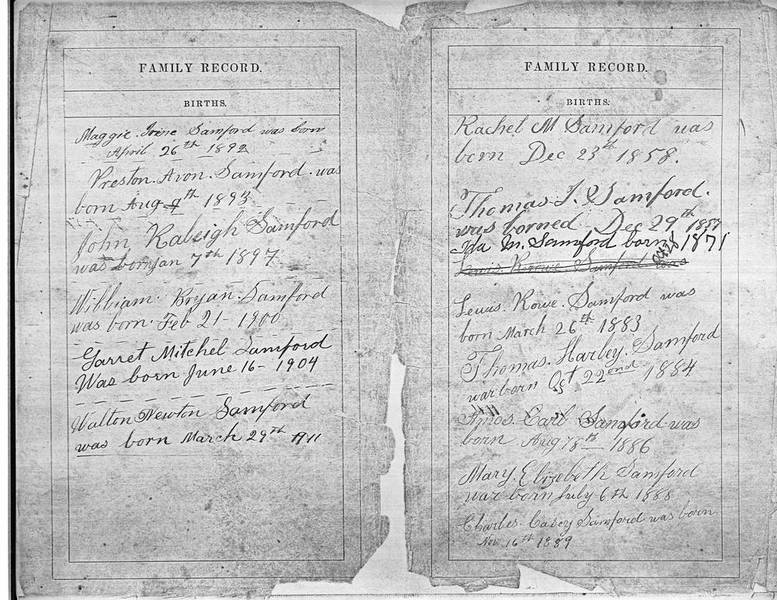 FAMILY RECORD.
BIRTHS.
Maggie Irene Samford was born
April 26th 1892
Preston Avon Samford was
born Aug 9th 1893
John Raleigh Samford
was born Jan 7th 1897
William Bryan Samford
was born Feb 21- 1900
Garret Mitchel Samford
Was born June 16- 1904
Walton Newton Samford
was born March 29th 1911
FAMILY RECORD.
BIRTHS.
Rachel M Samford was
born Dec 23rd 1858.
Thomas J. Samford.
was borned Dec 29th
Ida M. Samford born 1871
Samford was
Lewis Rowe Samford was
born March 26th 1883
Thomas Harley Samford
was born Oct 22end 1884
Amos Earl Samford was
born Aug 18th 1886
Mary Elizabeth Samford
was born July 6th 1888
Charles Casey Samford was born
Nov 16th 1889